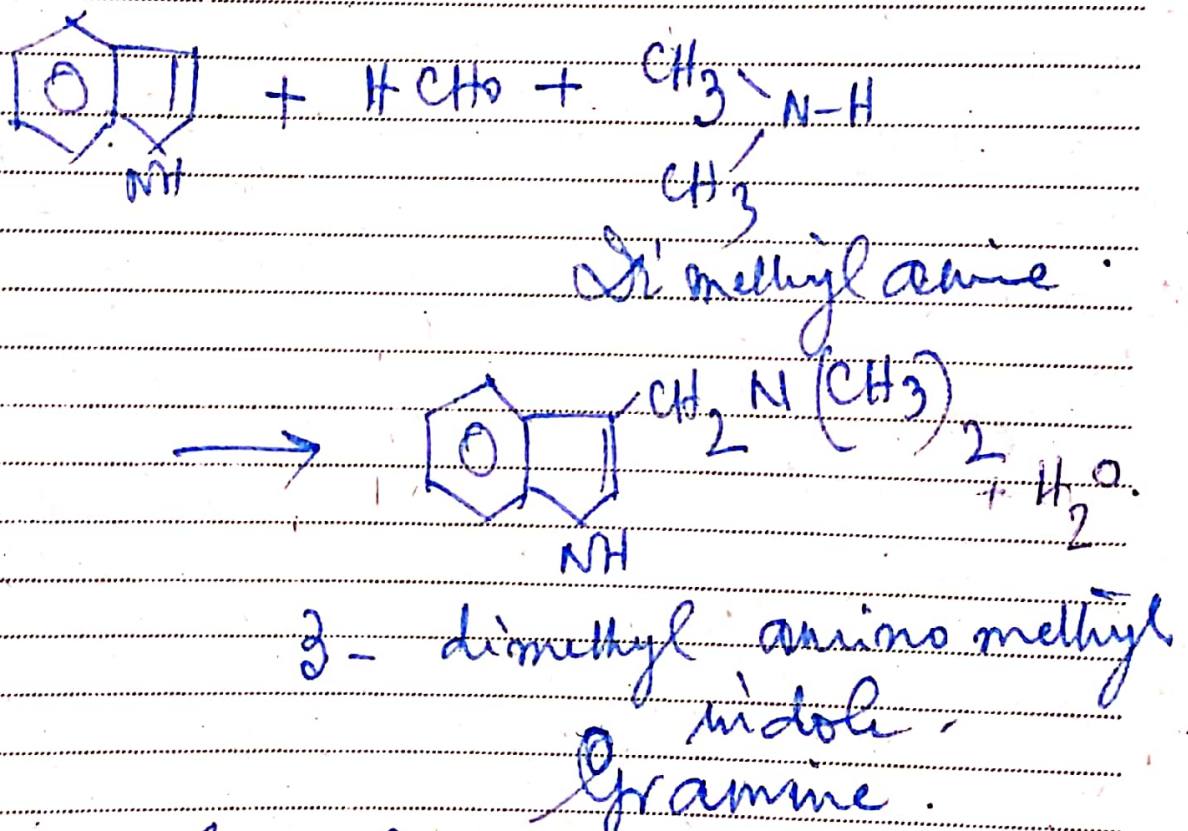 + HCHO + CH3
N-H
NH
CH3
Di methyl amine
CH2 N(CH3)2
+ H2O.
NH
3- dimethyl amino methyl
indole.
Gramine.